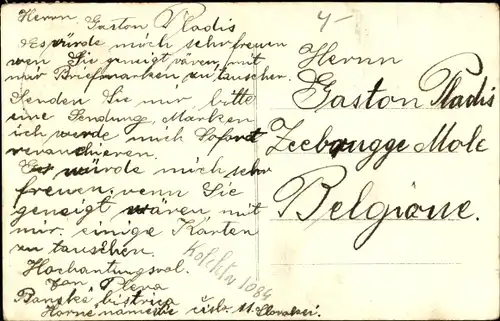 Herrn Gaston Pladis
Es würde mich sehr freuen
wen Sie geneigt wären, mit
mir Briefmarken zu tauschen.
Senden Sie mir bitte
eine Sendung Marken
ich werde mich Sofort
revanchieren.
Es würde mich sehr
freuen, wenn Sie
geneigt wären mit
mir einige Karten
zu tauschen.
Hochachtungsvol.
Jan
Banská bistrica
Horné námestie čísl. 11. Slovakei.
4-
Herrn
Gaston Pladis
Zeebrugge Mole
Belgique.
1084